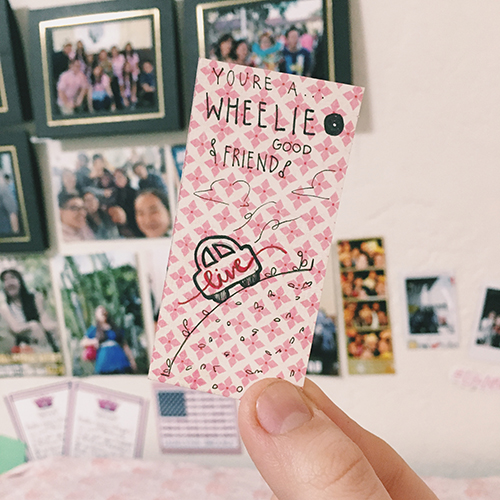 YOURE A...
WHEELIE
GOOD
FRIEND
live